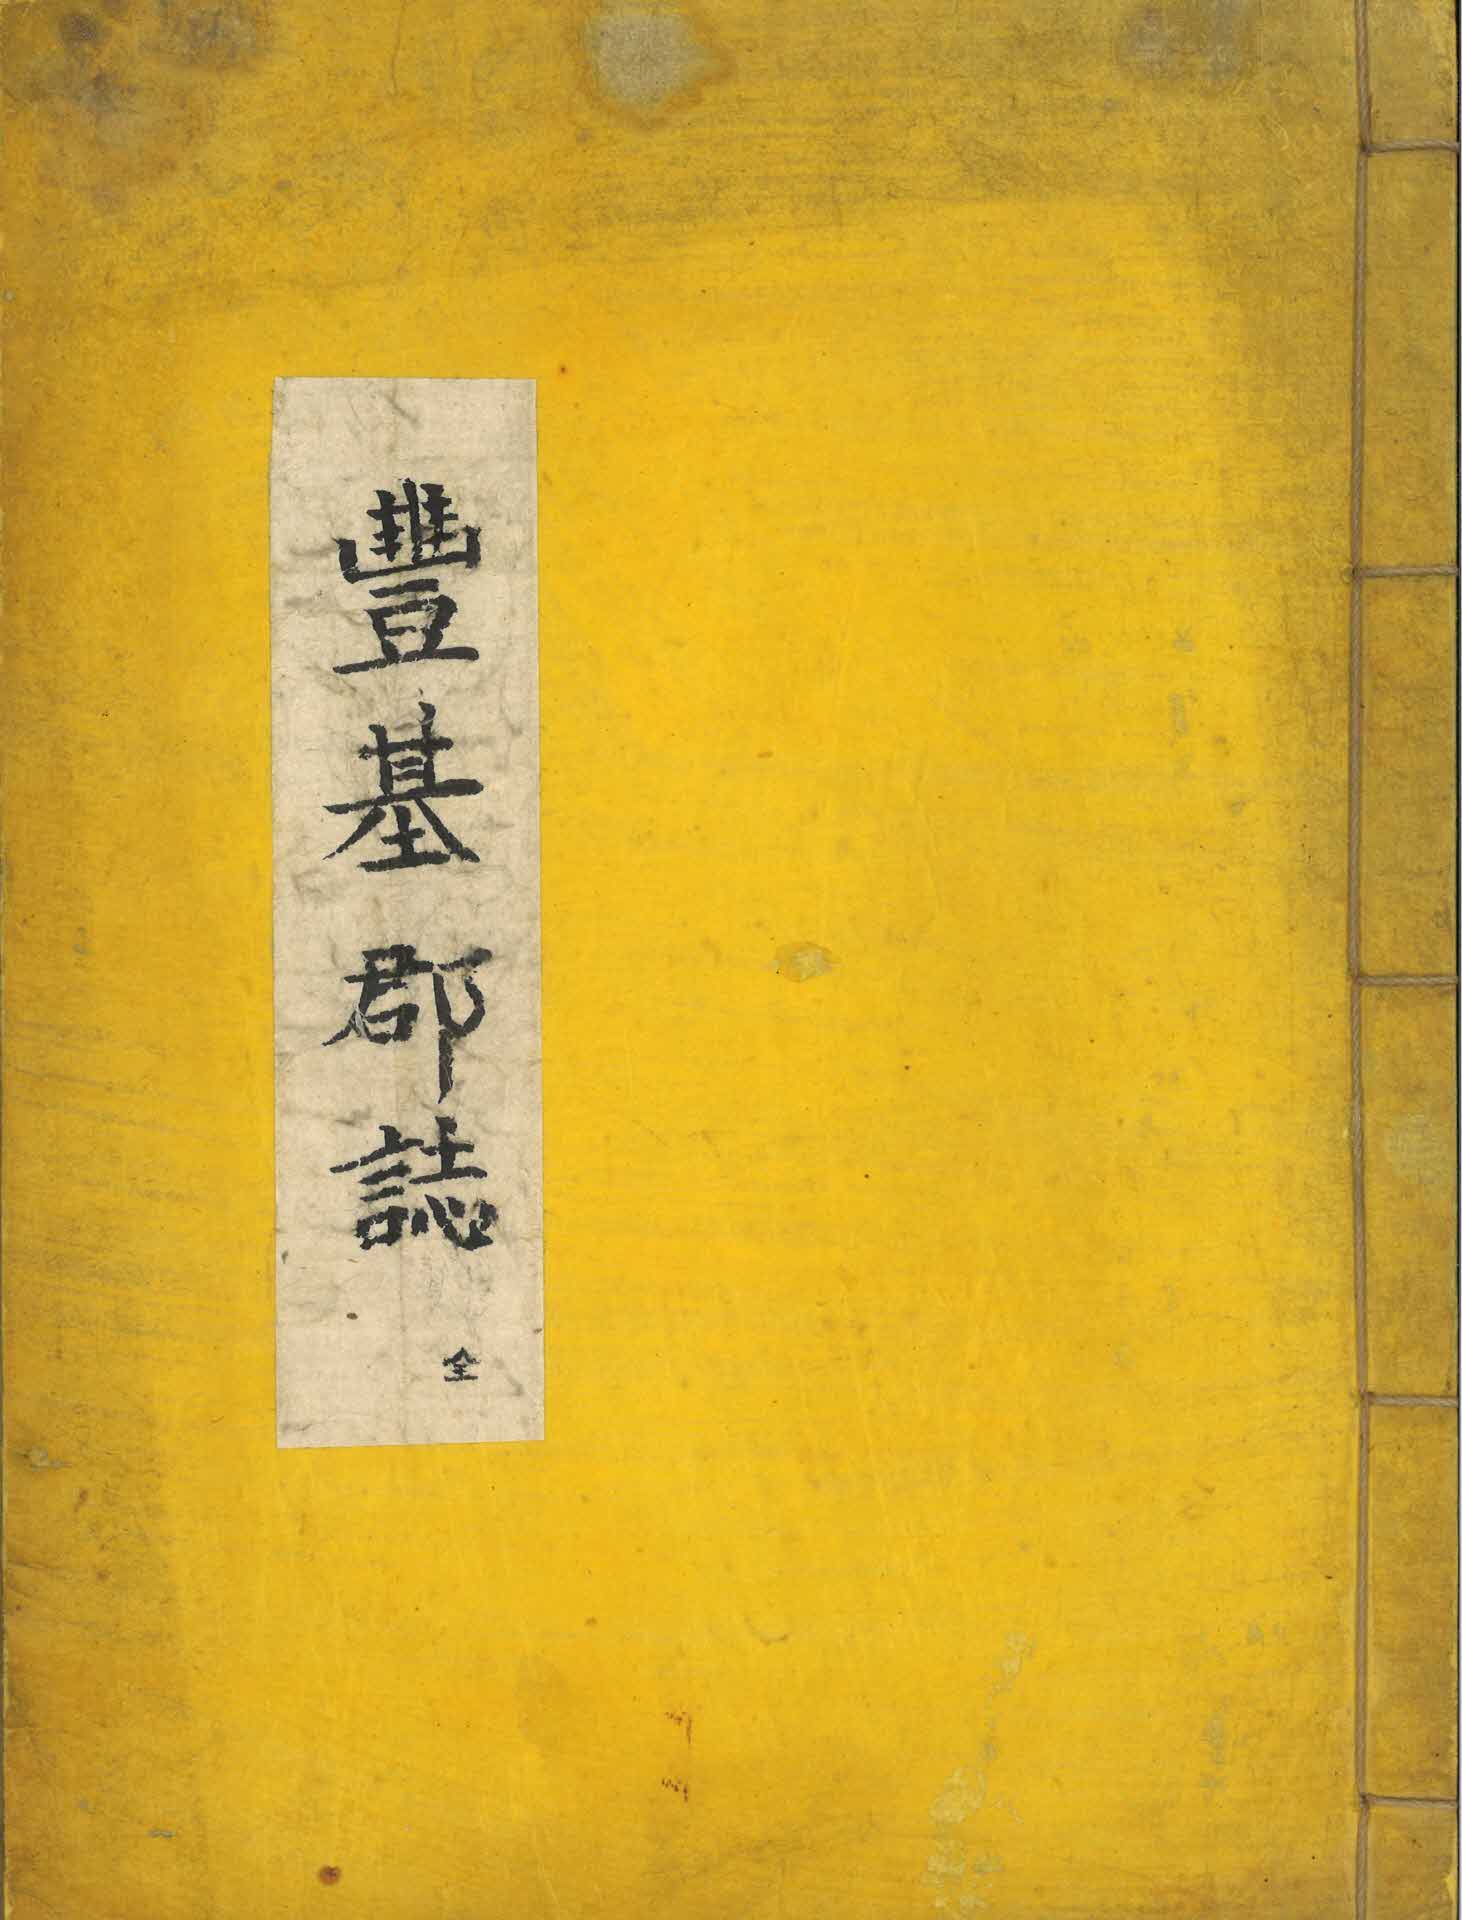 豐基郡誌
全